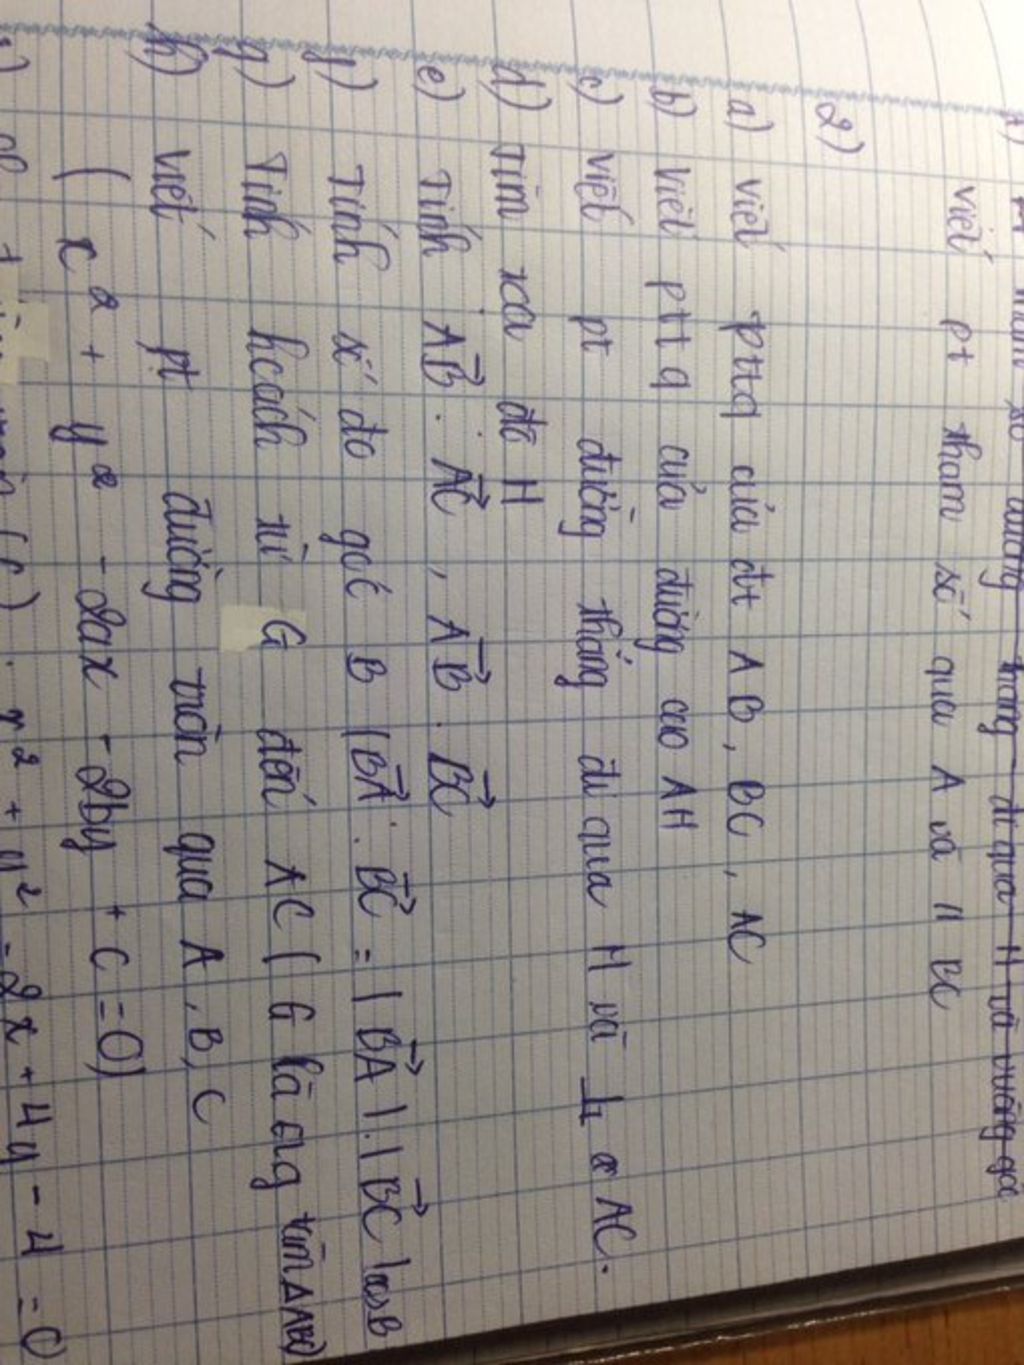 viết pt tham số qua A và // BC
2)
a) viết pttq của đt AB, BC, AC
b) viết pttq của đường cao AH
c) viết pt đường thẳng đi qua H và ⊥ AC.
d) Tìm tọa độ H
e) Tính AB→ . AC→ , AB→ . BC→
f) Tính số đo góc B (BA→ . BC→ = |BA→| . |BC→| cosB
g) Tính kcách từ G đến AC ( G là trọng tâm ΔABC)
h) viết pt đường tròn qua A, B, C
( x² + y² - 2ax - 2by + C = 0)
(C) : x² + y² - 2x + 4y - 4 = 0